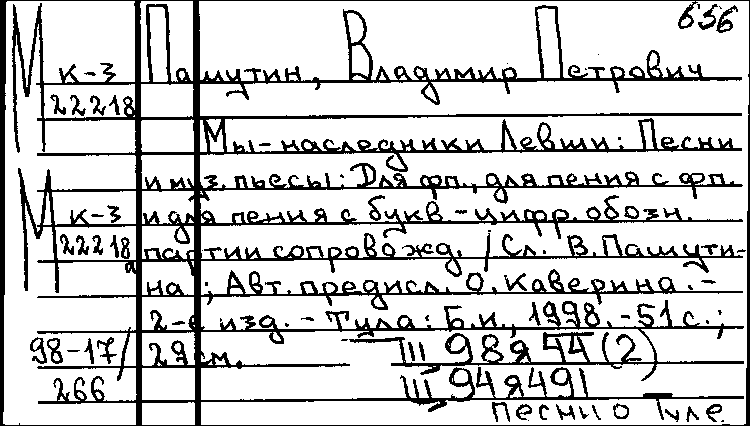 656
М к-3 Пашутин, Владимир Петрович
22218
Мы-наследники Левши: Песни
и муз. пьесы: Для фп., для пения с фп.
М к-3 и для пения с букв.-цифр. обозн.
22218а партии сопровожд. / Сл. В. Пашути-
на; Авт. предисл. О. Каверина. -
2-е изд. - Тула: Б.и., 1998. - 51 с.;
98-17/ 29 см. III 98я44(2)
266 III 94я491
песни о Туле